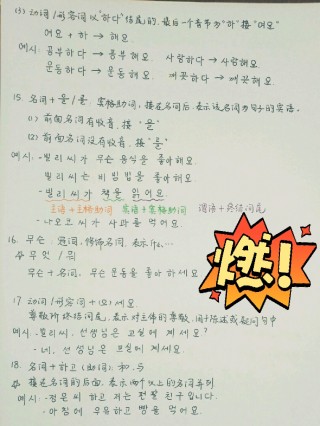 (3) 动词/形容词以"하다"结尾的, 最后一个音节为"하"接"여요"
여요 + 하 → 해요.
예시: 공부하다 → 공부해요. 사랑하다 → 사랑해요.
운동하다 → 운동해요. 깨끗하다 → 깨끗해요.
15. 名词 + 을/를. 宾格助词, 接在名词后, 表示该名词为句子的宾语。
(1) 前面名词有收音, 接 "을"
(2) 前面名词没有收音, 接 "를"
예시: - 빌리 씨가 무슨 음식을 좋아해요.
빌리 씨는 비빔밥을 좋아해요.
- 빌리 씨가 책을 읽어요.
主语+主格助词 宾语+宾格助词 谓语+终结词尾
- 나오코 씨가 사과를 먹어요.
16. 무슨: 冠词, 修饰名词, 表示什么…
무엇 / 뭐
무슨 + 名词. 무슨 운동을 좋아하세요
17. 动词/形容词 + (으)세요.
尊敬阶终结词尾, 表示对主体的尊敬, 用于陈述或疑问句中
예시. - 빌리 씨, 선생님은 교실에 계세요?
- 네, 선생님은 교실에 계세요.
18. 名词 + 하고 (助词): 和, 与
接在名词的后面, 表示两个以上的名词并列
예시: - 정문 씨하고 저는 펜팔 친구입니다.
- 아침에 우유하고 빵을 먹어요.
燃!